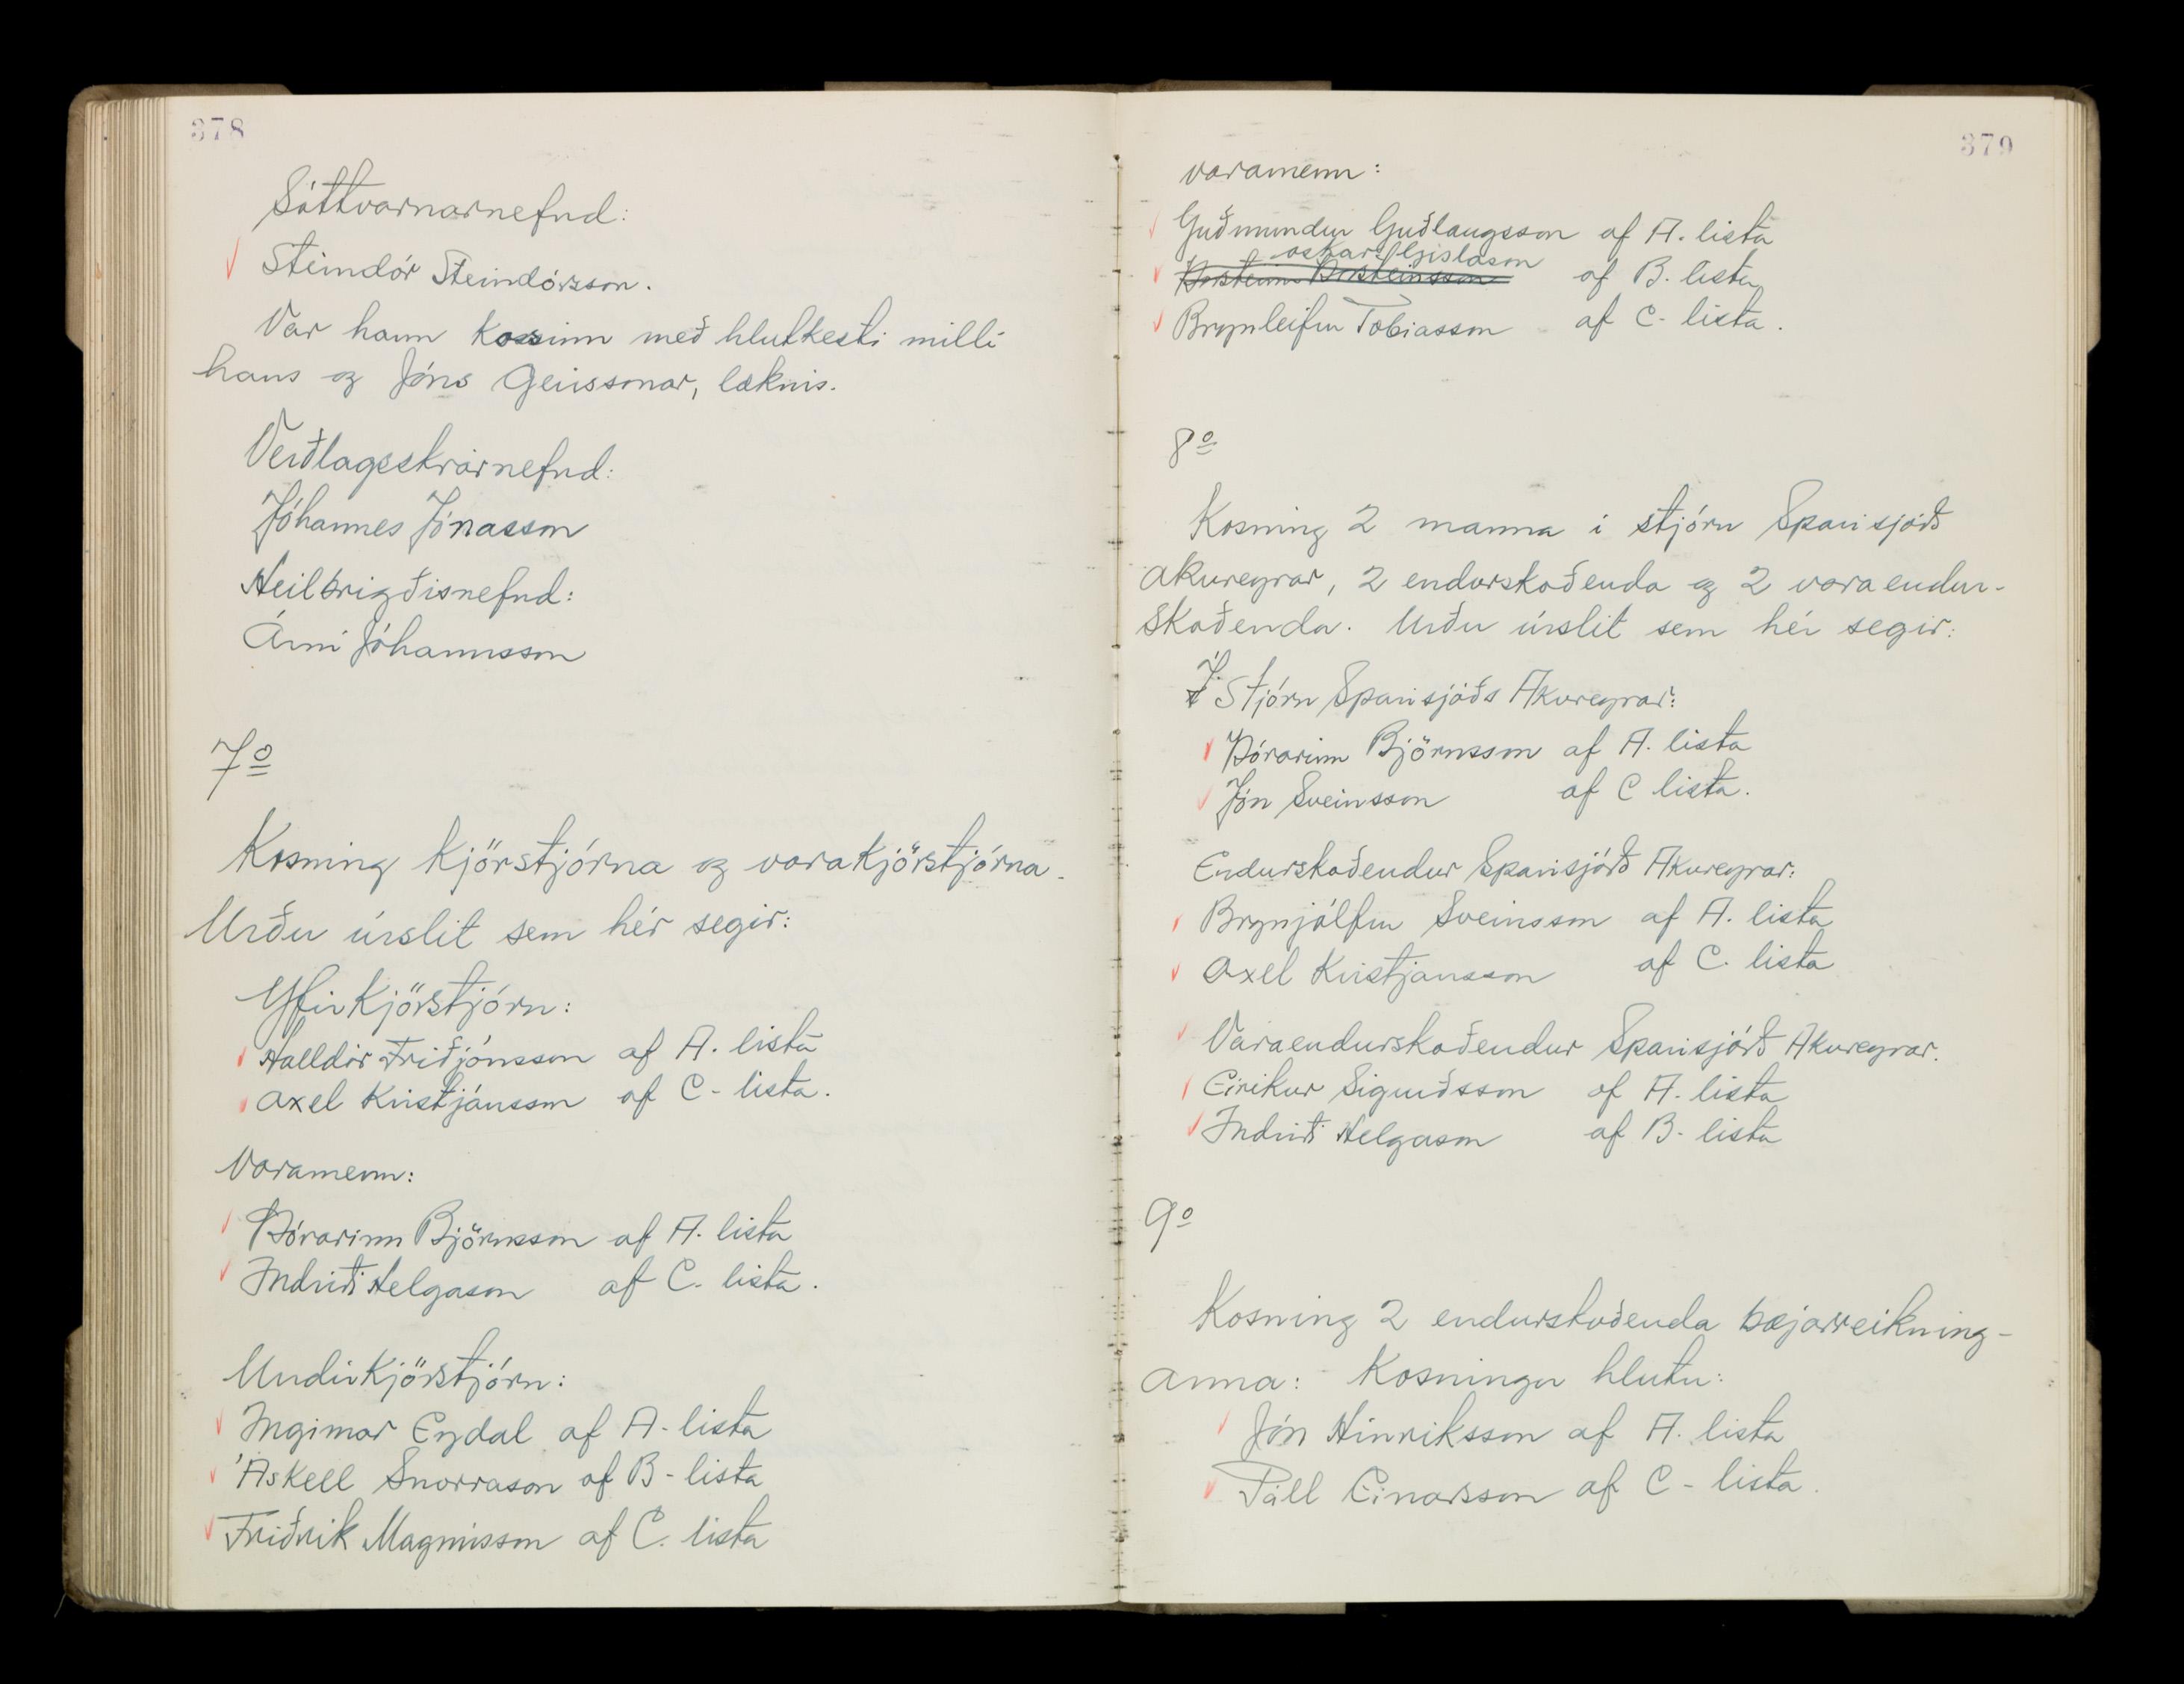 378
Sóttvarnarnefnd:
Steindór Steindórsson.
Var hann kosinn með hlutkesti milli
hans og Jóns Geirssonar, læknis.
Verðlagsskrárnefnd:
Jóhannes Jónasson
Heilbrigðisnefnd:
Árni Jóhannsson
7o
Kosning kjörstjórna og varakjörstjórna.
Urðu úrslit sem hér segir:
Yfirkjörstjórn:
Halldór Friðjónsson af A. lista
Axel Kristjánsson af C- lista.
Varamenn:
Þórarinn Björnsson af A. lista
Indriði Helgason af C. lista.
Undirkjörstjórn:
Ingimar Eydal af A- lista
Áskell Snorrason af B- lista
Friðrik Magnússon af C. lista
379
varamenn:
Guðmundur Guðlaugsson af A. lista
Oskar Gislason
Þorsteinn Þorsteinsson af B. lista
Brynleifur Tobiasson af C- lista.
8o
Kosning 2 manna i stjórn Sparisjóðs
Akureyrar, 2 endurskoðenda og 2 varaendur-
skoðenda. Urðu úrslit sem hér segir:
Í Stjórn Sparisjóðs Akureyrar:
Þórarinn Björnsson af A. lista
Jón Sveinsson af C lista.
Endurskoðendur Sparisjóðs Akureyrar:
Brynjólfur Sveinsson af A. lista
Axel Kristjansson af C. lista
Varaendurskoðendur Sparisjóðs Akureyrar.
Eirikur Sigurðsson af A. lista
Indriði Helgason af B- lista
9o
Kosning 2 endurskoðenda bæjarreikning-
anna: Kosningu hlutu:
Jón Hinriksson af A. lista
Páll Einarsson af C- lista.